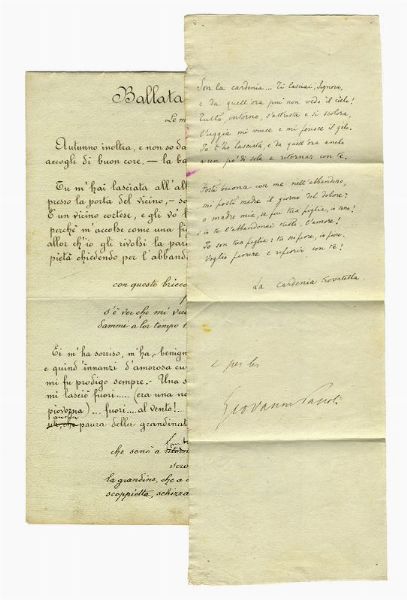 Ballata
Le m
Autunno inoltra, e non so da
accogli di buon core, — la ba
Tu m'hai lasciata all'al
presso la porta del vicino, — so
È un vicino cortese, e gli vo'
perché m'accolse come una fig
allor ch'io gli rividsi la par
pietà chiedendo per l'abband
con queste bricc
s'è ver che mi vu
dammi a lor tempo
Ei m'ha sorriso, m'ha, benign
e quind'innanzi d'amorosa cu
mi fu prodigo sempre. Una s
mi lasciò fuori..... (era una no
piovorna)... fuori... al vento!..
paura della grandinat
che sonò a
la grandine, che a
scoppietta, schizza
Son la cardenia... Tu lasciai, Signora,
e da quell'ora più non vedo il cielo!
Tutto, intorno, s'attrista e si scolora,
l'uggia mi vince e mi ferisce il gelo.
Io t'ho lasciata, e da quell'ora anelo
a un po' di sole e ritornar con te.
Fosti buona con me nell'abbandono,
mi fosti madre il giorno del dolore!
O madre mia, se pur tua figlia io sono!
Io son tua figlia: tu rifiore, io fiore.
Voglio fiorire e rifiorir con te!
La Cardenia Trovatella
e per lei
Giovanni Pascoli